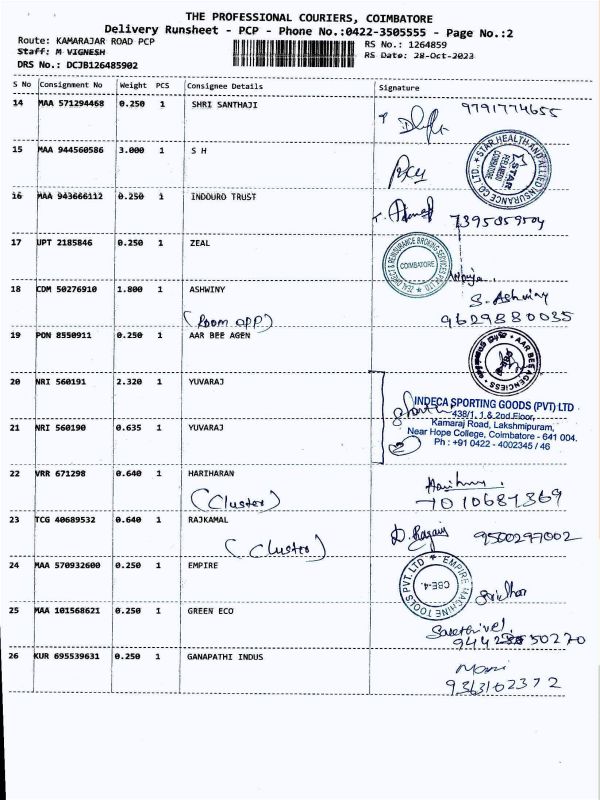 THE PROFESSIONAL COURIERS, COIMBATORE
Delivery Runsheet - PCP - Phone No.:0422-3505555 - Page No.:2
Route: KAMARAJAR ROAD PCP RS No.: 1264859
Staff: M VIGNESH RS Date: 28-Oct-2023
DRS No.: DCJB126485902
S No Consignment No Weight PCS Consignee Details Signature
14 MAA 571294468 0.250 1 SHRI SANTHAJI 9791774655
15 MAA 944560586 3.000 1 S H
STAR HEALTH AND ALLIED INSURANCE CO. LTD.,
STAR
COIMBATORE
16 MAA 943666112 0.250 1 INDOURO TRUST 7395859504
17 UPT 2185846 0.250 1 ZEAL
COIMBATORE
18 CDM 50276910 1.800 1 ASHWINY S. Ashwiny
(Room opp) 9629880035
19 PON 8550911 0.250 1 AAR BEE AGEN
AAR BEE AGENCIESS
20 NRI 560191 2.320 1 YUVARAJ
INDECA SPORTING GOODS (PVT) LTD
438/1, 1 & 2nd Floor,
21 NRI 560190 0.635 1 YUVARAJ
Kamaraj Road, Lakshmipuram,
Near Hope College, Coimbatore - 641 004.
Ph : +91 0422 - 4002345 / 46
22 VRR 671298 0.640 1 HARIHARAN
(Cluster) 7010687369
23 TCG 40689532 0.640 1 RAJKAMAL 9500297002
(Cluster)
24 MAA 570932600 0.250 1 EMPIRE
EMPIRE MACHINE TOOLS PVT. LTD
CBE-4.
Sridhar
25 MAA 101568621 0.250 1 GREEN ECO
26 KUR 695539631 0.250 1 GANAPATHI INDUS Mani
9363102372